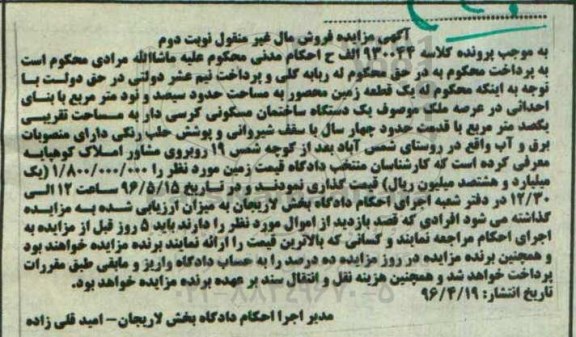 آگهی مزایده فروش مال غیر منقول نوبت دوم
به موجب پرونده کلاسه ۹۳۰۰۴۴ الف ح احکام مدنی محکوم علیه ماشاالله مرادی محکوم است
به پرداخت محکوم به در حق محکوم له ربابه گلی و پرداخت نیم عشر دولتی در حق دولت با
توجه به اینکه محکوم له یک قطعه زمین محصور به مساحت حدود سیصد و نود متر مربع با بنای
احداثی در عرصه ملک موصوف یک دستگاه ساختمان مسکونی کرسی دار به مساحت تقریبی
یکصد متر مربع با قدمت حدود چهار سال با سقف شیروانی و پوشش حلب رنگی دارای منصوبات
برق و آب واقع در روستای شمس آباد بعد از کوچه شمس ۱۹ روبروی مشاور املاک کوهپایه
معرفی کرده است که کارشناسان منتخب دادگاه قیمت زمین مورد نظر را ۱/۸۰۰/۰۰۰/۰۰۰ (یک
میلیارد و هشتصد میلیون ریال) قیمت گذاری نمودند و در تاریخ ۹۶/۵/۱۵ ساعت ۱۲ الی
۱۲/۳۰ در دفتر شعبه اجرای احکام دادگاه بخش لاریجان به میزان ارزیابی شده به مزایده
گذاشته می شود افرادی که قصد بازدید از اموال مورد نظر را دارند باید ۵ روز قبل از مزایده به
اجرای احکام مراجعه نمایند و کسانی که بالاترین قیمت را ارائه نمایند برنده مزایده خواهند بود
و همچنین برنده مزایده در روز مزایده ده درصد را به حساب دادگاه واریز و مابقی طبق مقررات
پرداخت خواهد شد و همچنین هزینه نقل و انتقال سند بر عهده برنده مزایده خواهد بود.
تاریخ انتشار: ۹۶/۴/۱۹
مدیر اجرا احکام دادگاه بخش لاریجان – امید قلی زاده